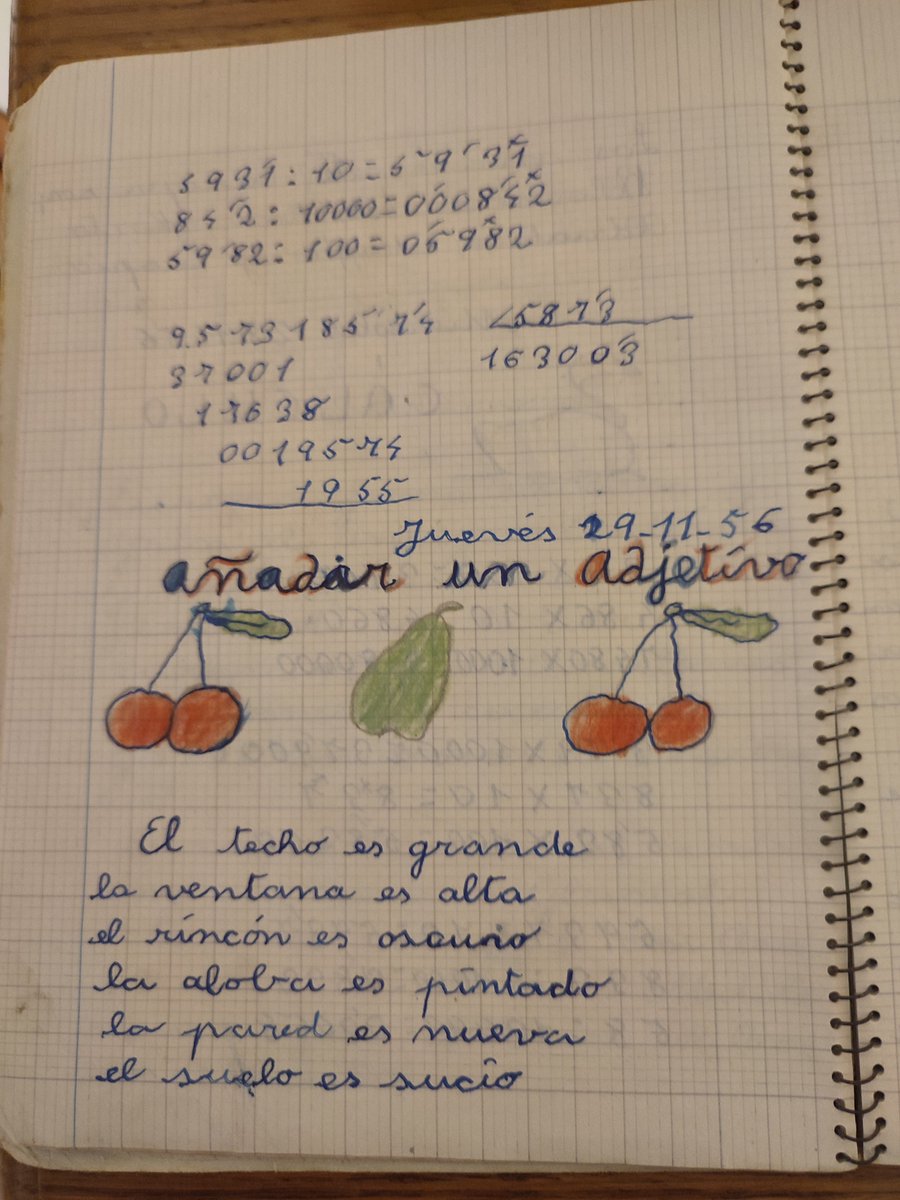 5931 : 10 = 5 9'31
842 : 10000 = 0'00842
5982 : 100 = 05982
957318574 <u>5873</u>
37001 163003
17638
0019574
1955
Juevés 29-11-56
añadir un adjetívo
El techo es grande
la ventana es alta
el ríncón es oscuro
la aloba es píntado
la pared es nueva
el suelo es sucío